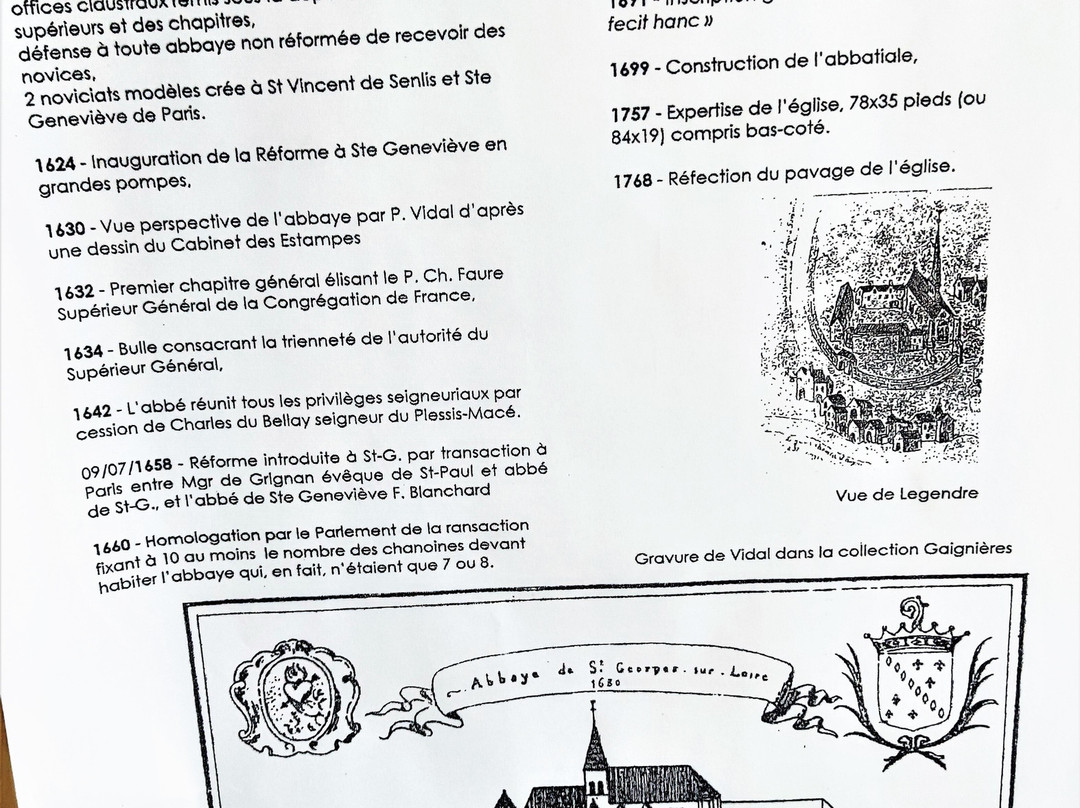 offices claustraux remis sous la
supérieurs et des chapitres,
défense à toute abbaye non réformée de recevoir des
novices,
2 noviciats modèles crée à St Vincent de Senlis et Ste
Geneviève de Paris.
1624 - Inauguration de la Réforme à Ste Geneviève en
grandes pompes,
1630 - Vue perspective de l'abbaye par P. Vidal d'après
une dessin du Cabinet des Estampes
1632 - Premier chapitre général élisant le P. Ch. Faure
Supérieur Général de la Congrégation de France,
1634 - Bulle consacrant la trienneté de l'autorité du
Supérieur Général,
1642 - L'abbé réunit tous les privilèges seigneuriaux par
cession de Charles du Bellay seigneur du Plessis-Macé.
09/07/1658 - Réforme introduite à St-G. par transaction à
Paris entre Mgr de Grignan évêque de St-Paul et abbé
de St-G., et l'abbé de Ste Geneviève F. Blanchard
1660 - Homologation par le Parlement de la ransaction
fixant à 10 au moins le nombre des chanoines devant
habiter l'abbaye qui, en fait, n'étaient que 7 ou 8.
fecit hanc »
1699 - Construction de l'abbatiale,
1757 - Expertise de l'église, 78x35 pieds (ou
84x19) compris bas-coté.
1768 - Réfection du pavage de l'église.
Vue de Legendre
Gravure de Vidal dans la collection Gaignières
Abbaye de St Georges-sur-Loire
1680